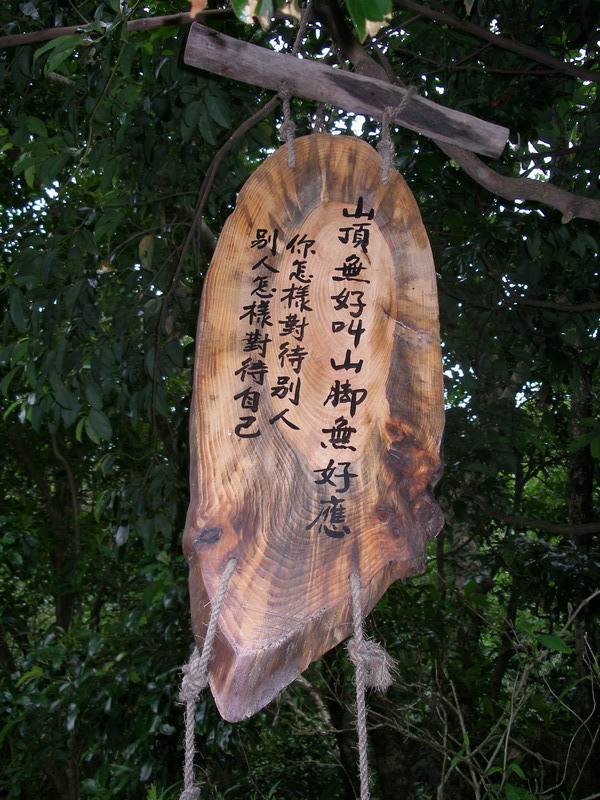 山頂無好叫山脚無好應
你怎樣對待别人
别人怎樣對待自己